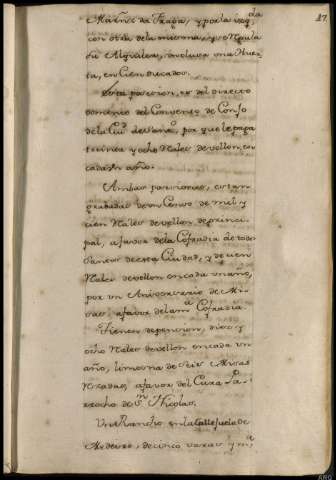 17
Martinez da Fraga, y por la izq.da
con otra de la misma, y
su Alquiler, inclusa una Huer=
ta, en Cien Ducados.
Esta posesion, es del directo
dominio del Convento de Conso
de la Ciu.d de por que le paga
treinta y ocho Reales de vellon, en
cada un año.
Ambas posesiones, estan
grabadas de un Censo de mil y
cien Reales de vellon de princi=
pal, a favor de la Cofradia de todos
Santos de esta Ciudad, y de cien
Reales de vellon en cada un año,
por un Aniversario de Mi=
sas, a favor de la m.a Cofradia.
Tienen de pension, diez y
ocho Reales de vellon en cada un
año, limosna de seis Misas
Rezadas, a favor del Cura Pa=
rrocho de S.n Nicolas.
Un Rancho en la Callejuela de
de cinco varas y m.a
ARG